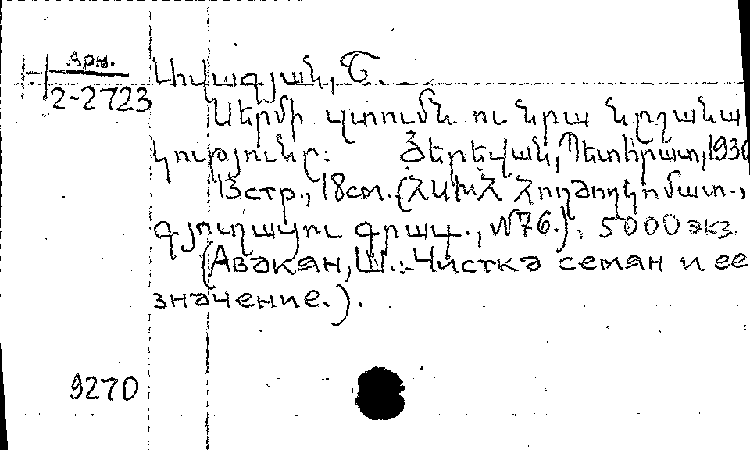 Арм.
2-2723
Ավագյան, Շ.
Սերմի զտումն ու նրա նշանա
կությունը: Յերեվան, Պետհրատ, 1930
13стр., 18см. (ՀՍԽՀ Հողժողկոմատ.,
գյուղատնտ. գրադ., №76.). 5000 экз.
(Авакян, Ш.: Чистка семян и ее
значение.).
9270